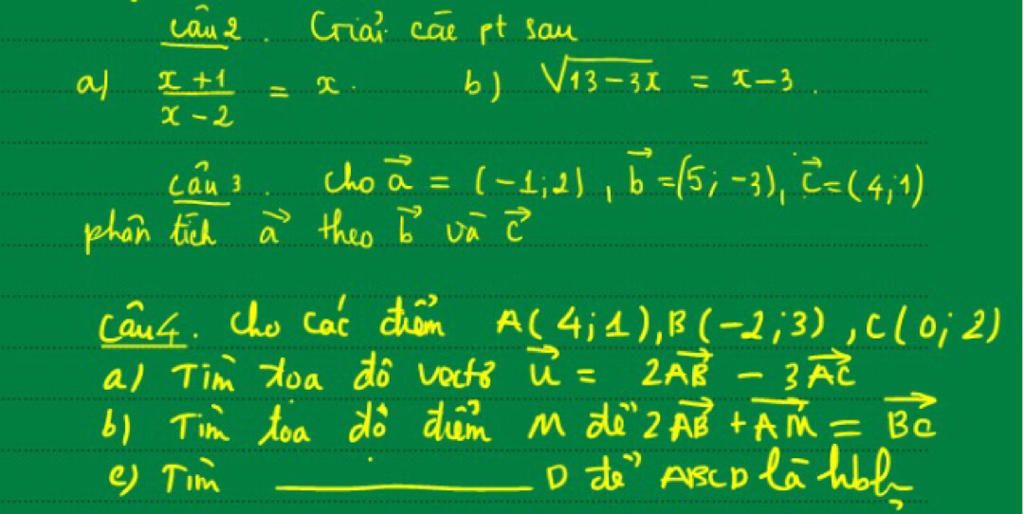 Câu 2. Giải các pt sau
a) \frac{x+1}{x-2} = x. b) \sqrt{13-3x} = x-3.
Câu 3. Cho \vec{a} = (-1;2), \vec{b} = (5;-3), \vec{c} = (4;1)
phân tích \vec{a} theo \vec{b} và \vec{c}
Câu 4. Cho các điểm A(4;1), B(-2;3), C(0;2)
a) Tìm tọa độ vectơ \vec{u} = 2\vec{AB} - 3\vec{AC}
b) Tìm tọa độ điểm M để 2\vec{AB} + \vec{AM} = \vec{BC}
c) Tìm ________ D để ABCD là hbh